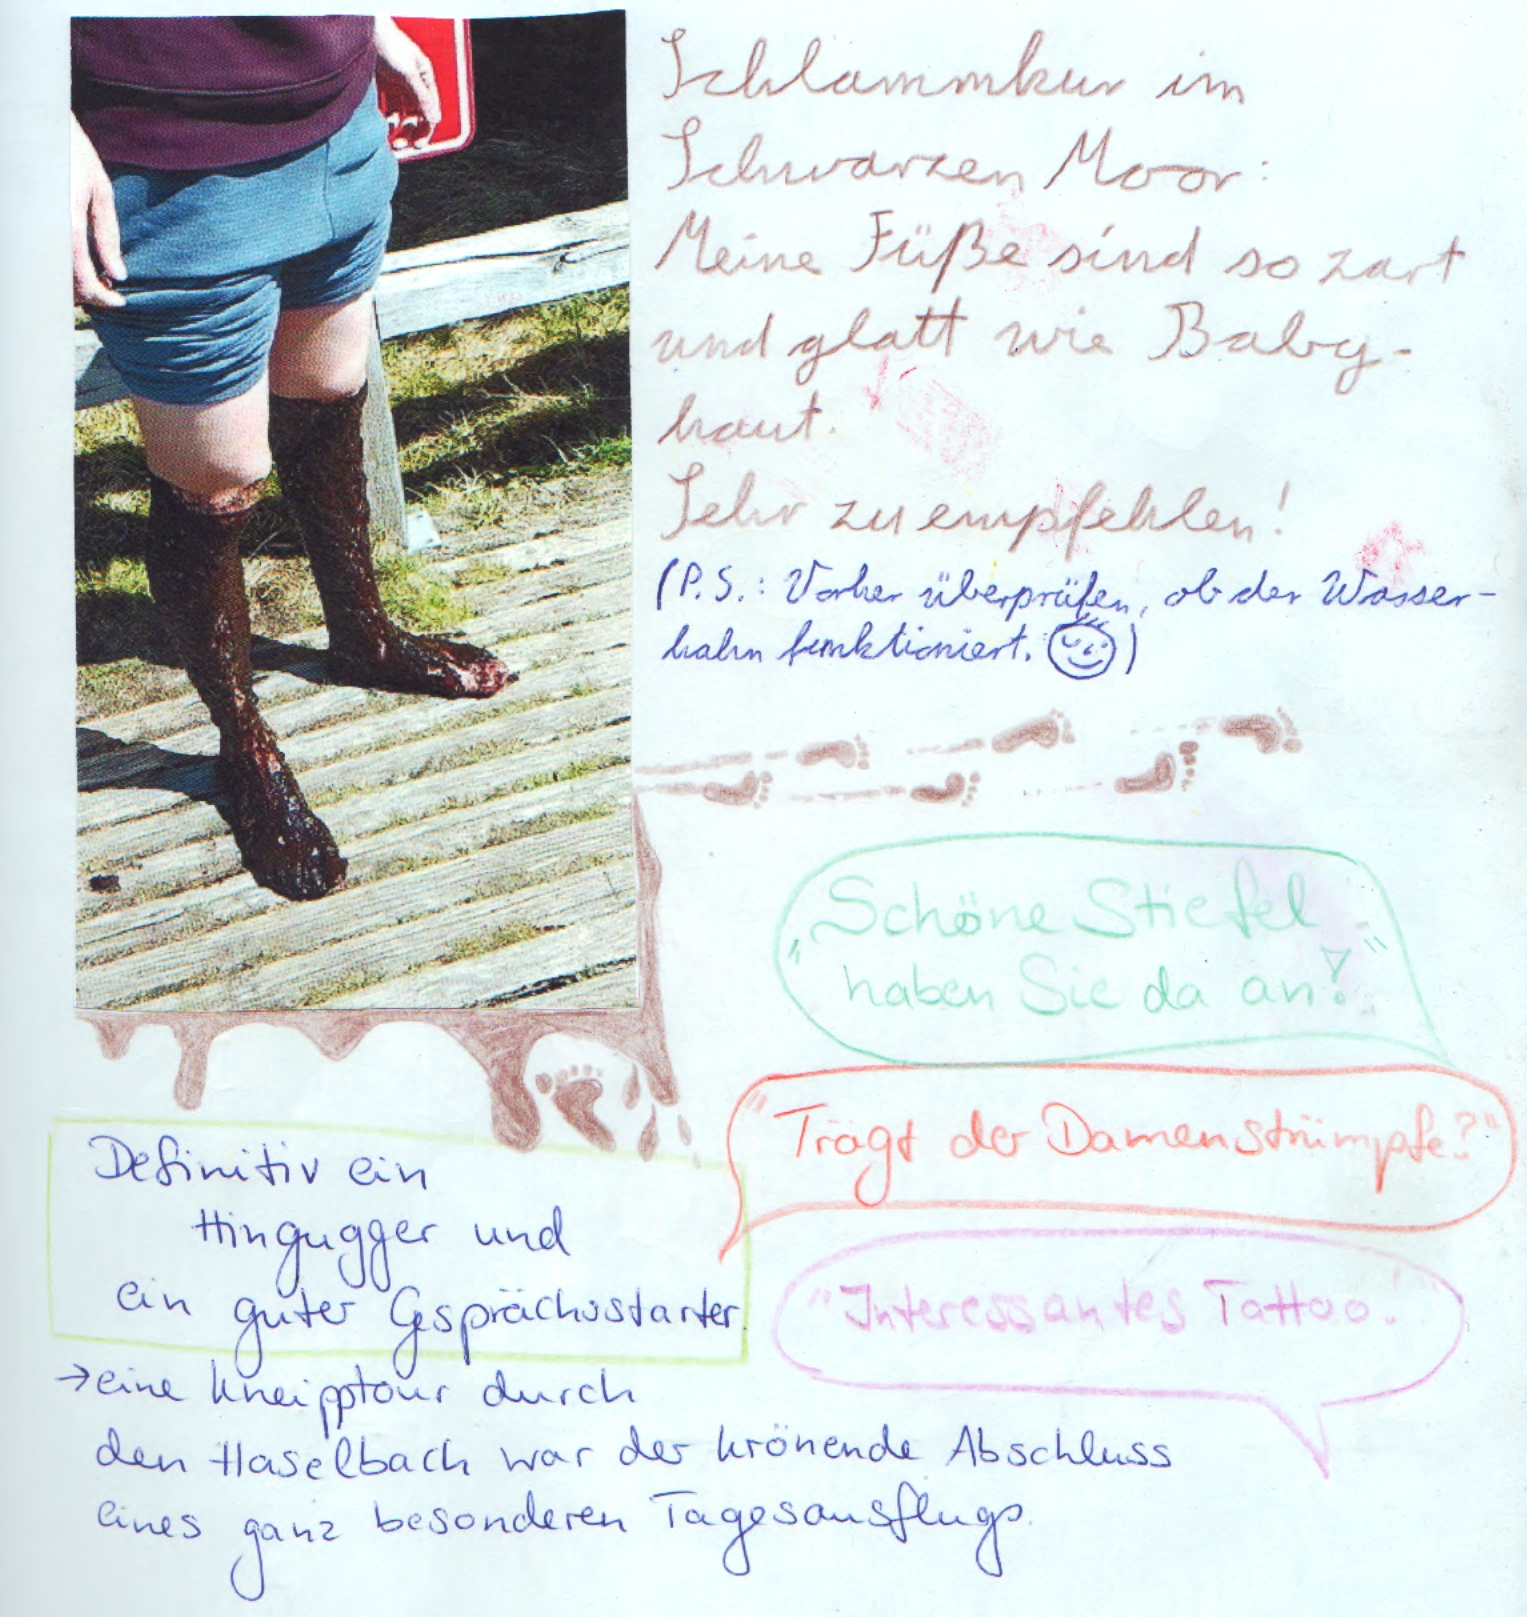 Schlammkur im
Schwarzen Moor:
Meine Füße sind so zart
und glatt wie Baby-
haut.
Sehr zu empfehlen!
(P.S.: Vorher überprüfen, ob der Wasser-
hahn funktioniert. )
"Schöne Stiefel
haben Sie da an!"
"Trägt der Damenstrümpfe?"
"Interessantes Tattoo."
Definitiv ein
Hingugger und
ein guter Gsprächsstarter.
→ eine Kneipptour durch
den Haselbach war der krönende Abschluss
eines ganz besonderen Tagesausflugs.